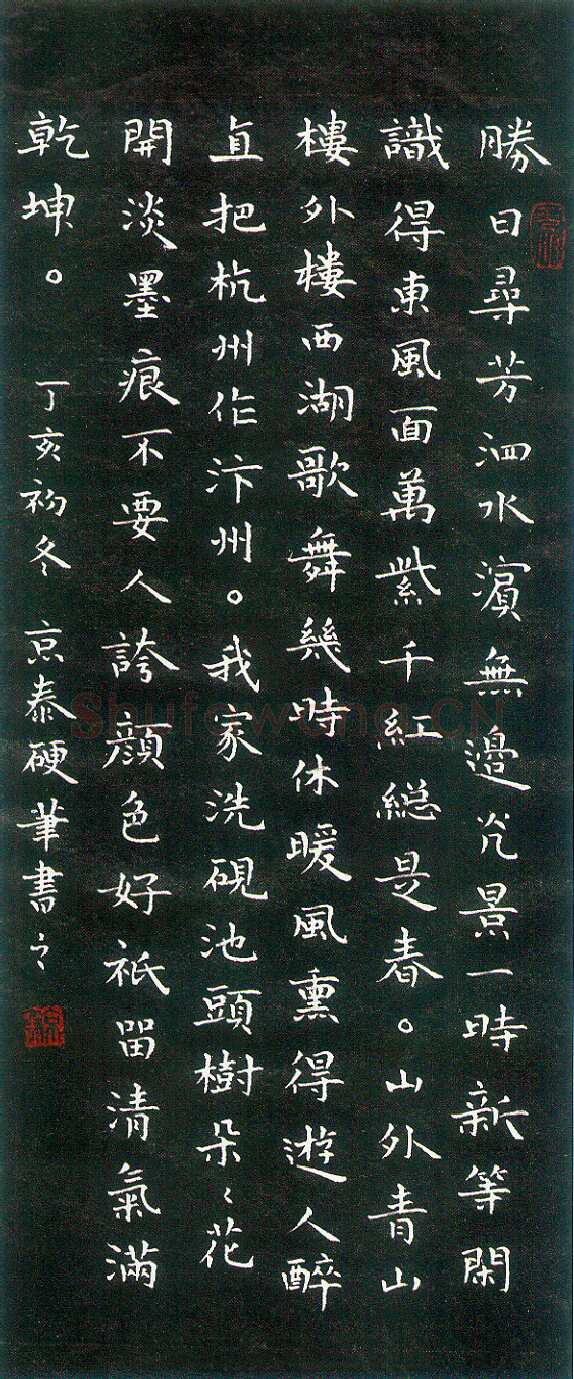 勝日尋芳泗水濱無邊光景一時新等閑
識得東風面萬紫千紅總是春。山外青山
樓外樓西湖歌舞幾時休暖風熏得遊人醉
直把杭州作汴州。我家洗硯池頭樹朵々花
開淡墨痕不要人誇顏色好祇留清氣滿
乾坤。
丁亥初冬 京泰硬筆書之
Shufawang.CN